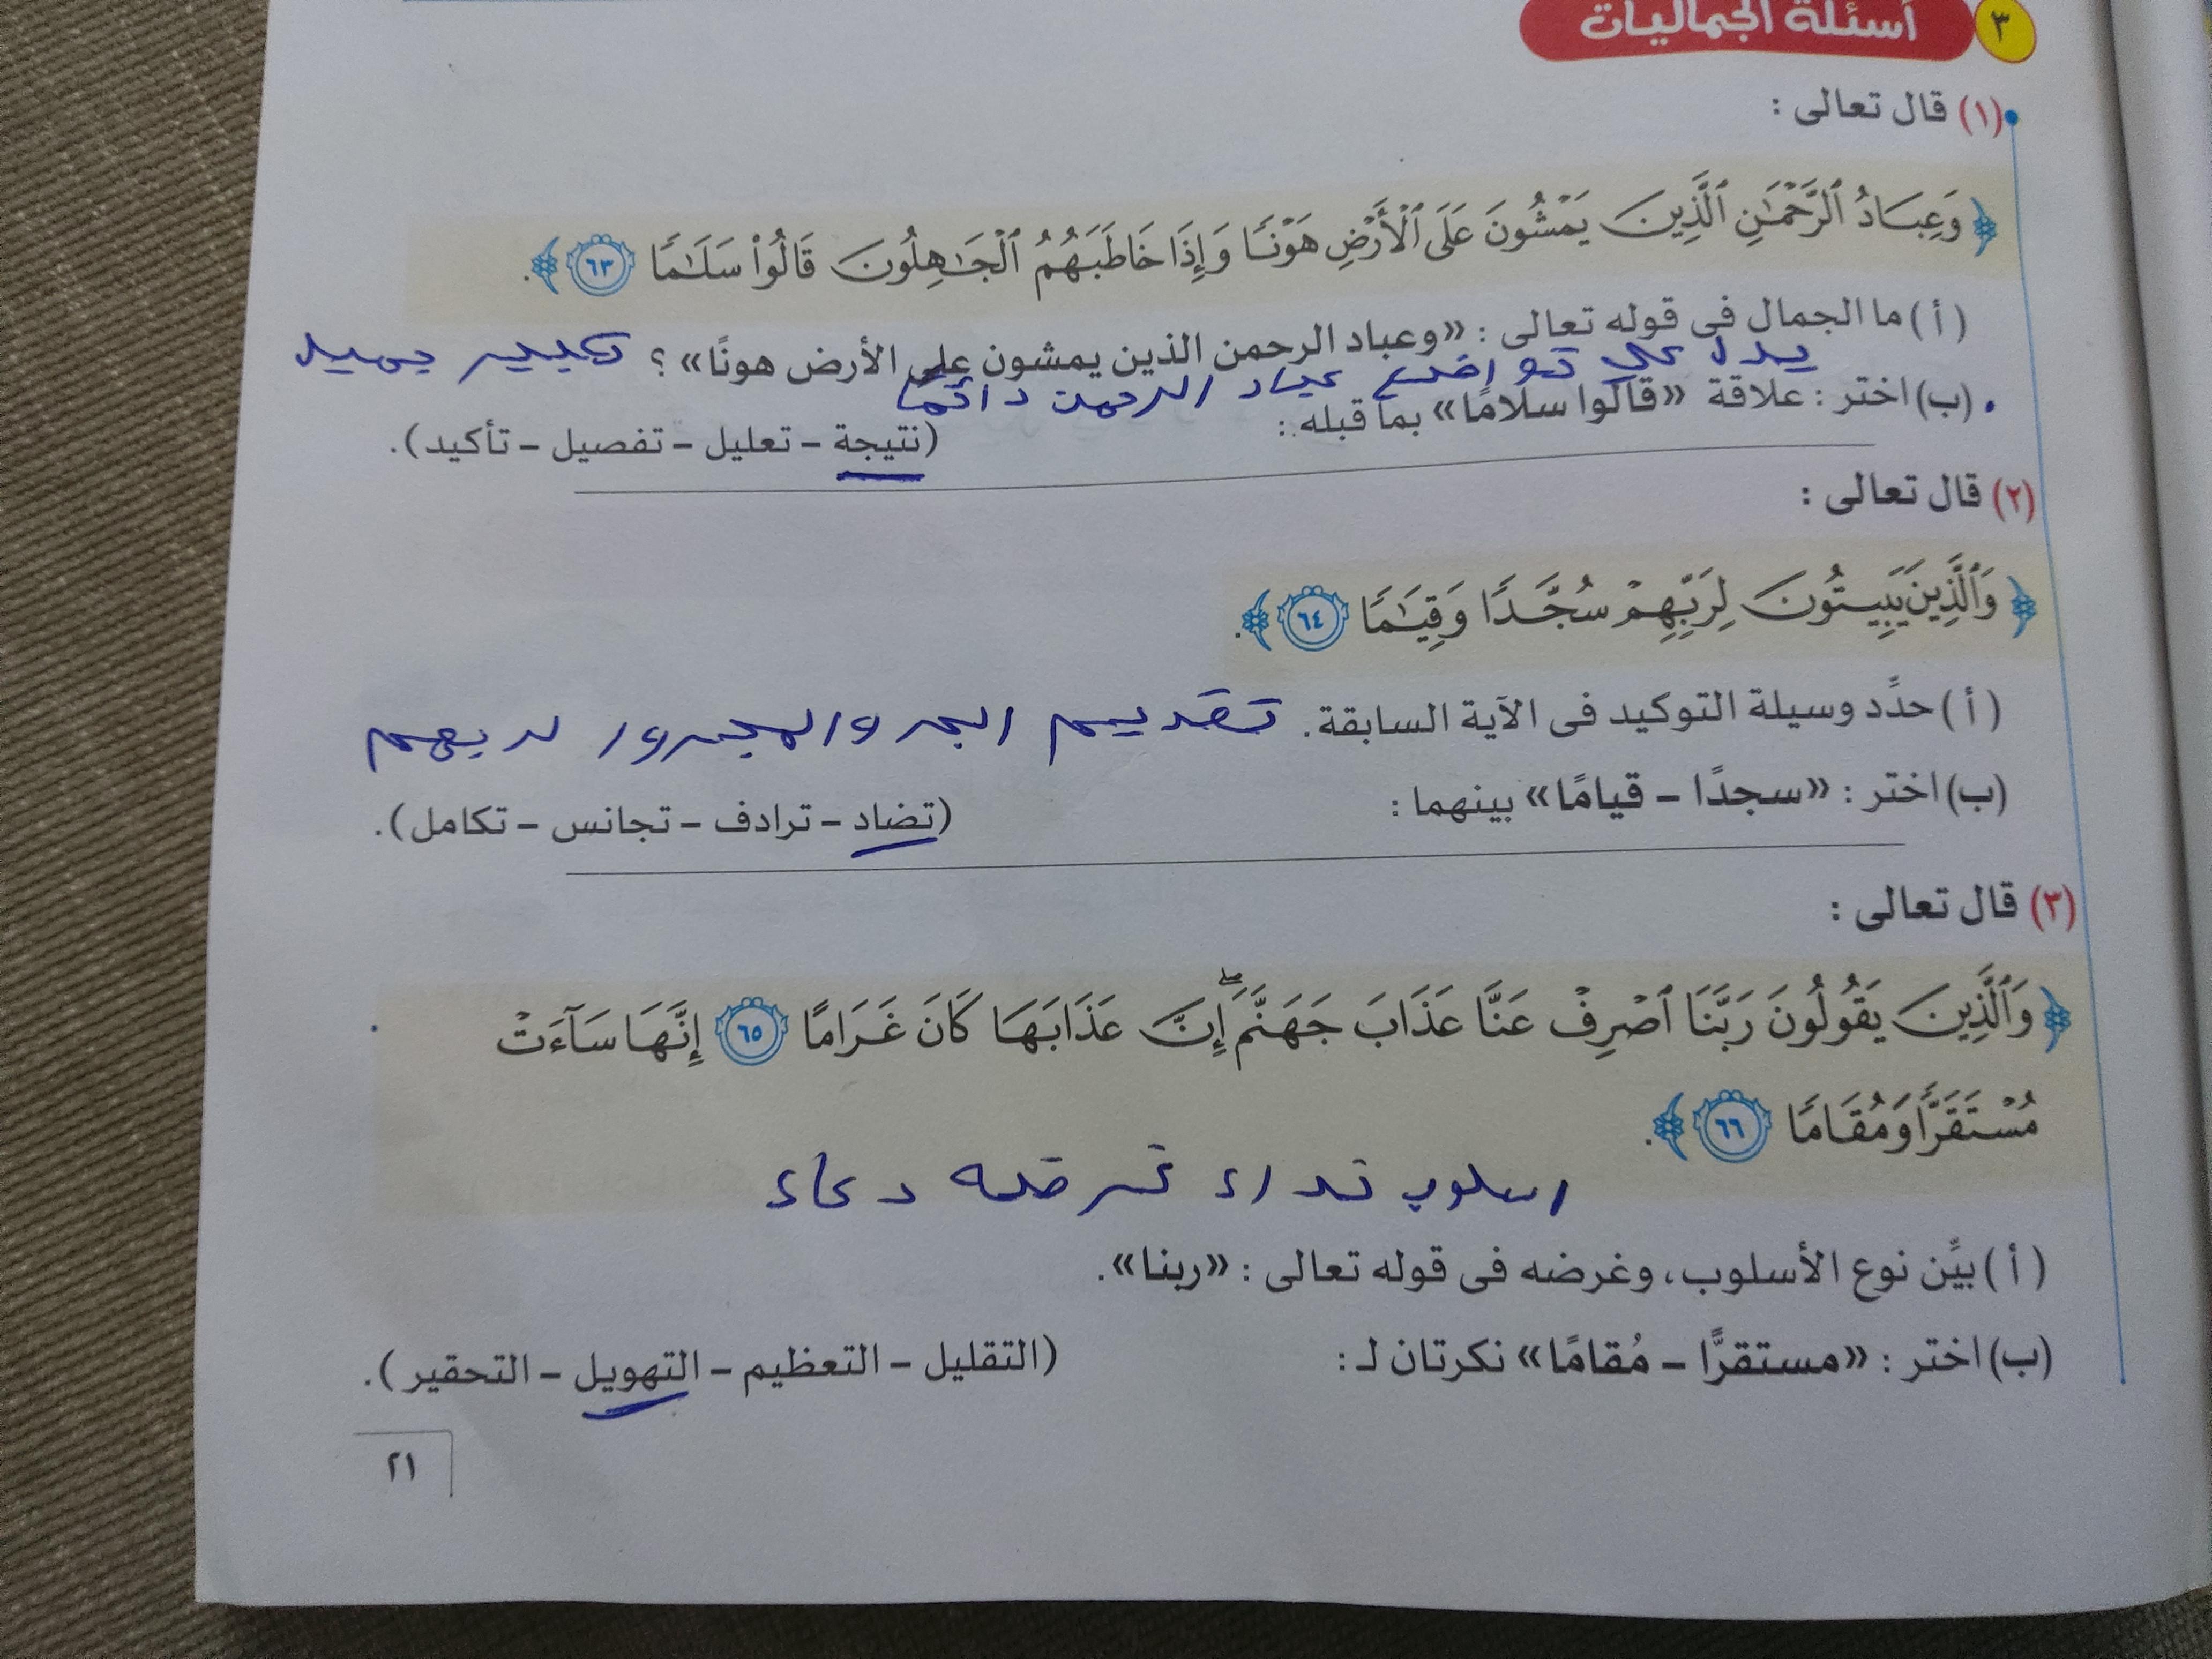 ٣ أسئلة الجماليات
(١) قال تعالى :
﴿ وَعِبَادُ ٱلرَّحْمَٰنِ ٱلَّذِينَ يَمْشُونَ عَلَى ٱلْأَرْضِ هَوْنًا وَإِذَا خَاطَبَهُمُ ٱلْجَٰهِلُونَ قَالُوا۟ سَلَٰمًا ٦٣ ﴾.
( أ ) ما الجمال فى قوله تعالى : «وعباد الرحمن الذين يمشون على الأرض هونًا» ؟ تعبير جميل
يدل على تواضع عباد الرحمن دائما
(ب) اختر : علاقة «قالوا سلامًا» بما قبله : (نتيجة – تعليل – تفصيل – تأكيد).
(٢) قال تعالى :
﴿ وَٱلَّذِينَ يَبِيتُونَ لِرَبِّهِمْ سُجَّدًا وَقِيَٰمًا ٦٤ ﴾.
( أ ) حدِّد وسيلة التوكيد فى الآية السابقة. تقديم الجر والمجرور لربهم
(ب) اختر : «سجدًا – قيامًا» بينهما : (تضاد – ترادف – تجانس – تكامل).
(٣) قال تعالى :
﴿ وَٱلَّذِينَ يَقُولُونَ رَبَّنَا ٱصْرِفْ عَنَّا عَذَابَ جَهَنَّمَ ۖ إِنَّ عَذَابَهَا كَانَ غَرَامًا ٦٥ إِنَّهَا سَآءَتْ
مُسْتَقَرًّا وَمُقَامًا ٦٦ ﴾.
اسلوب نداء غرضه دعاء
( أ ) بيِّن نوع الأسلوب، وغرضه فى قوله تعالى : «ربنا».
(ب) اختر : «مستقرًّا – مُقامًا» نكرتان لـ : (التقليل – التعظيم – التهويل – التحقير).
٢١